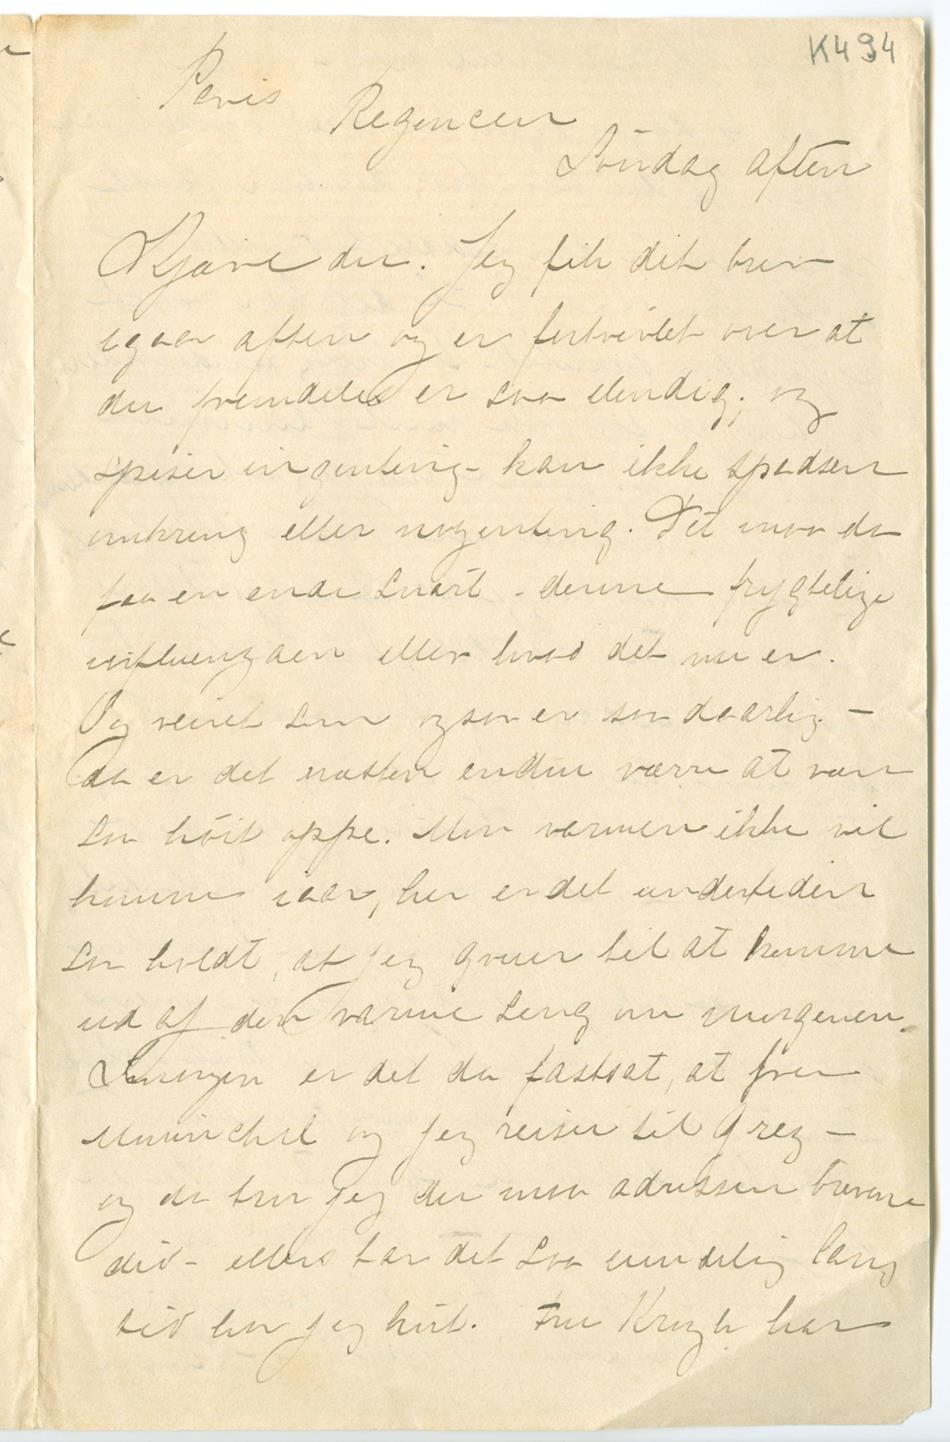 K494
Paris Regencen
Söndag aften
Kjære du. Jeg fik dit brev
igaar aften og er fortvivlet over at
du fremdeles er saa elendig, og
spiser ingenting – kan ikke spadsere
omkring eller nogenting. Det maa da
faa en ende snart – denne frygtelige
influenzaen eller hvad det nu er.
Og veiret som ogsaa er saa daarlig –
da er det næsten endnu værre at være
saa höit oppe. Mon varmen ikke vil
komme iaar, her er det undertiden
saa koldt, at jeg gruer til at komme
ud af den varme seng om morgenen.
Imorgen er det da fastsat, at fru
og jeg reiser til Grez –
og da tror jeg du maa adressere brevene
did – ellers tar det saa uendelig lang
tid før jeg hört. Fru Krogh har